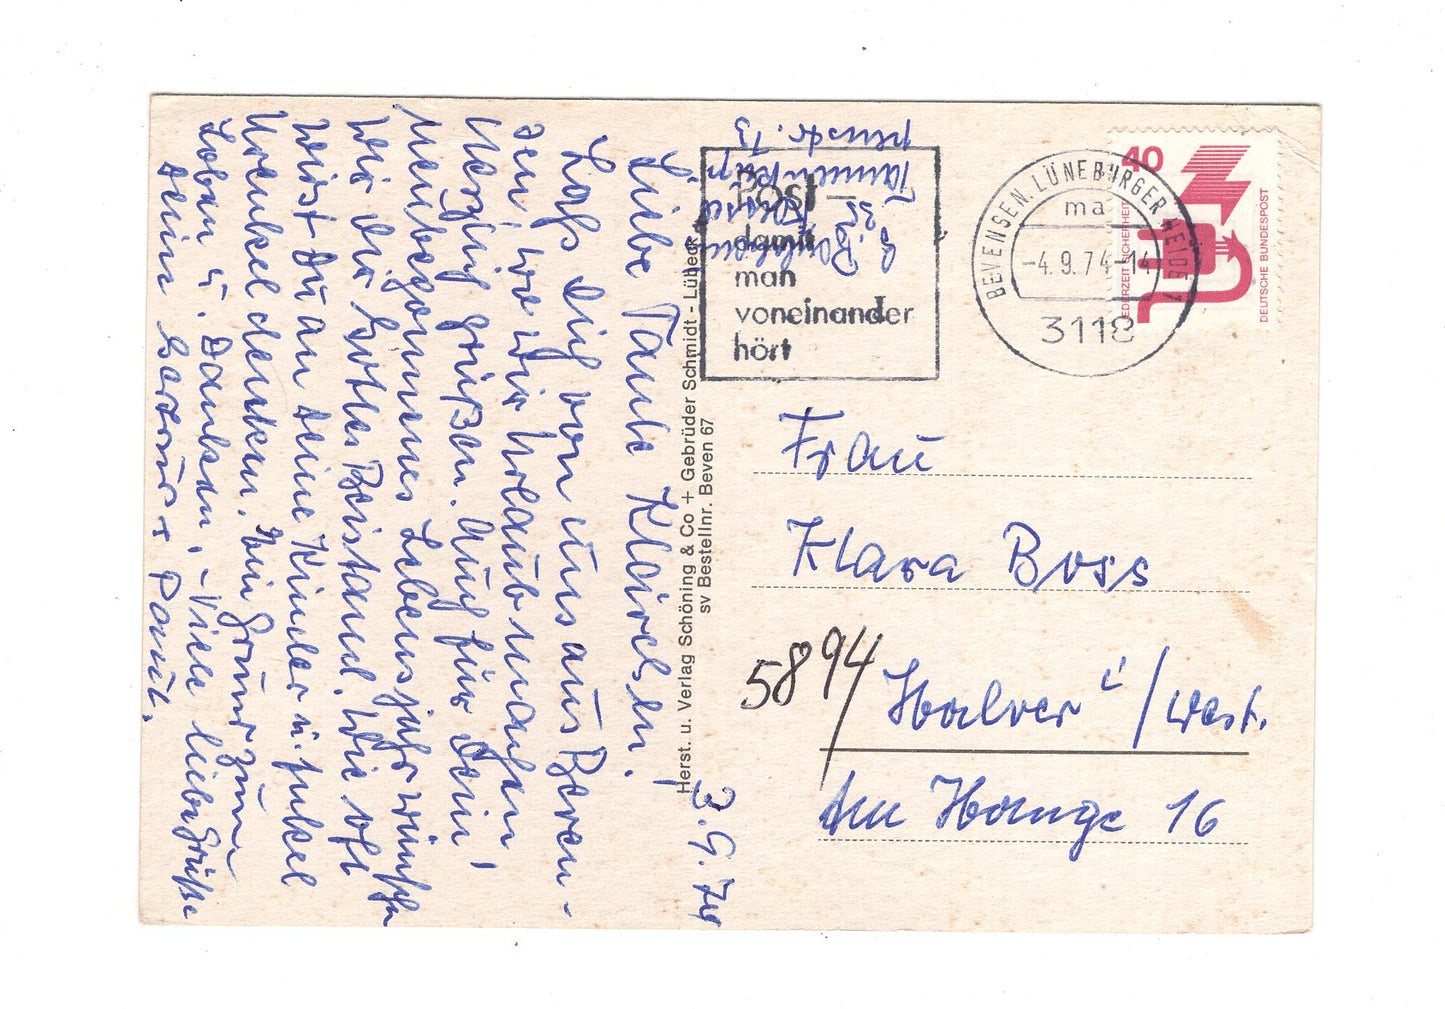 3.9.74
Liebe Tante Klärchen!
Laß Dich von uns aus Beven-
sen, wo wir Urlaub machen,
herzlich grüßen. Auch für Dein
neubegonnenes Lebensjahr wünschen
wir Dir Gottes Beistand. Wie oft
wirst Du an Deine Kinder u. Enkel
Urenkel denken. Ein Grund zum
Loben u. Danken. Viele liebe Grüße
Deine
Paul.
Tannenkopp
str. 13
Herst. u. Verlag Schöning & Co + Gebrüder Schmidt - Lübeck
sv Bestellnr. Beven 67
Post –
damit
man
voneinander
hört
BEVENSEN, LÜNEBURGER HEIDE 1
ma
-4.9.74-14
3118
40
JEDERZEIT SICHERHEIT
DEUTSCHE BUNDESPOST
Frau
Klara Boss
5894 Halver i/West.
Am Hange 16